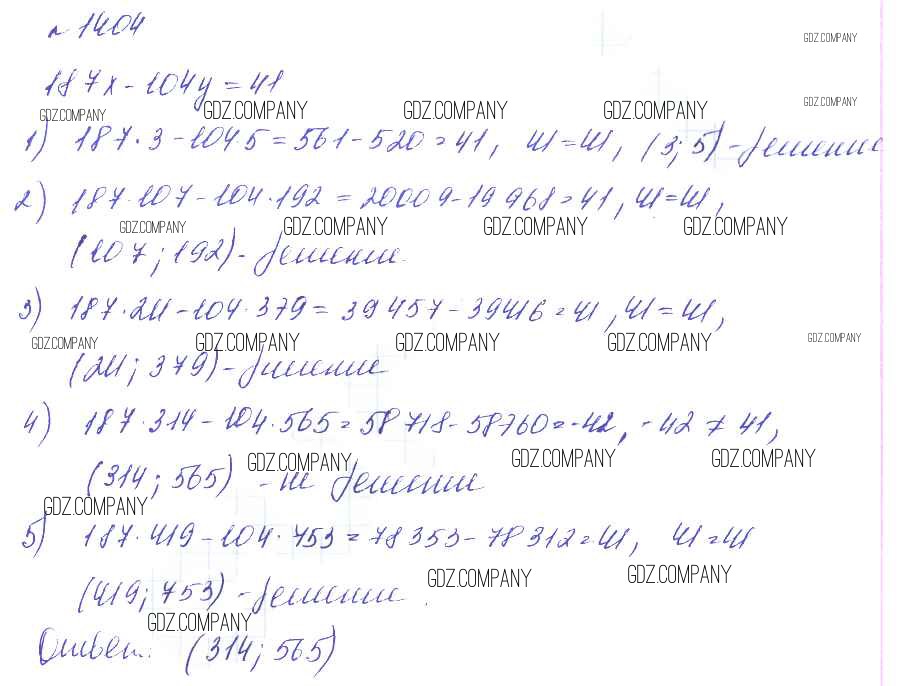 № 1404
GDZ.COMPANY
187x - 104y = 41
GDZ.COMPANY GDZ.COMPANY GDZ.COMPANY GDZ.COMPANY GDZ.COMPANY
1) 187·3 - 104·5 = 561 - 520 = 41, 41 = 41, (3; 5) - решение
2) 187·107 - 104·192 = 20009 - 19968 = 41, 41 = 41,
GDZ.COMPANY GDZ.COMPANY GDZ.COMPANY GDZ.COMPANY
(107; 192) - решение.
3) 187·211 - 104·379 = 39457 - 39416 = 41, 41 = 41,
GDZ.COMPANY GDZ.COMPANY GDZ.COMPANY GDZ.COMPANY GDZ.COMPANY
(211; 379) - решение
4) 187·314 - 104·565 = 58718 - 58760 = -42, -42 ≠ 41,
GDZ.COMPANY GDZ.COMPANY GDZ.COMPANY
(314; 565) - не решение
GDZ.COMPANY
5) 187·419 - 104·753 = 78353 - 78312 = 41, 41 = 41
GDZ.COMPANY GDZ.COMPANY
(419; 753) - решение.
GDZ.COMPANY
Ответ: (314; 565)